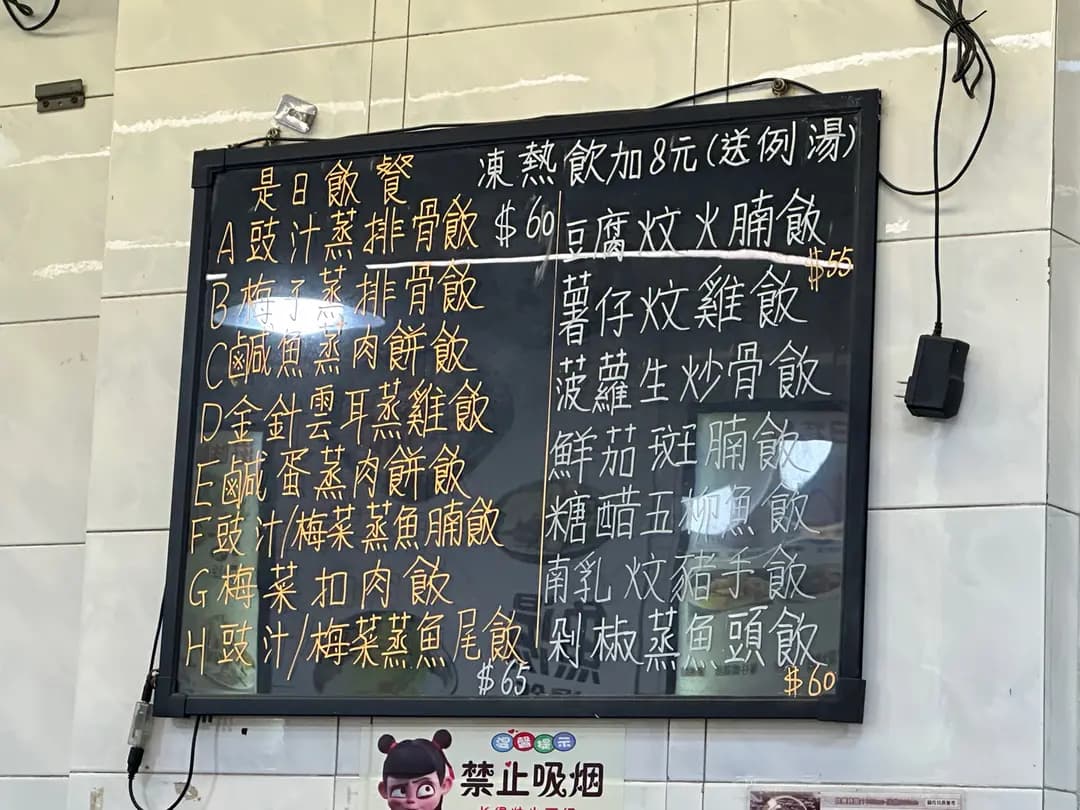 是日飯餐
凍熱飲加8元(送例湯)
A豉汁蒸排骨飯 $60
B梅子蒸排骨飯
C鹹魚蒸肉餅飯
D金針雲耳蒸雞飯
E鹹蛋蒸肉餅飯
F豉汁/梅菜蒸魚腩飯
G梅菜扣肉飯
H豉汁/梅菜蒸魚尾飯
$65
豆腐炆火腩飯
$55
薯仔炆雞飯
菠蘿生炒骨飯
鮮茄斑腩飯
糖醋五柳魚飯
南乳炆豬手飯
剁椒蒸魚頭飯
$60
溫馨提示
禁止吸烟